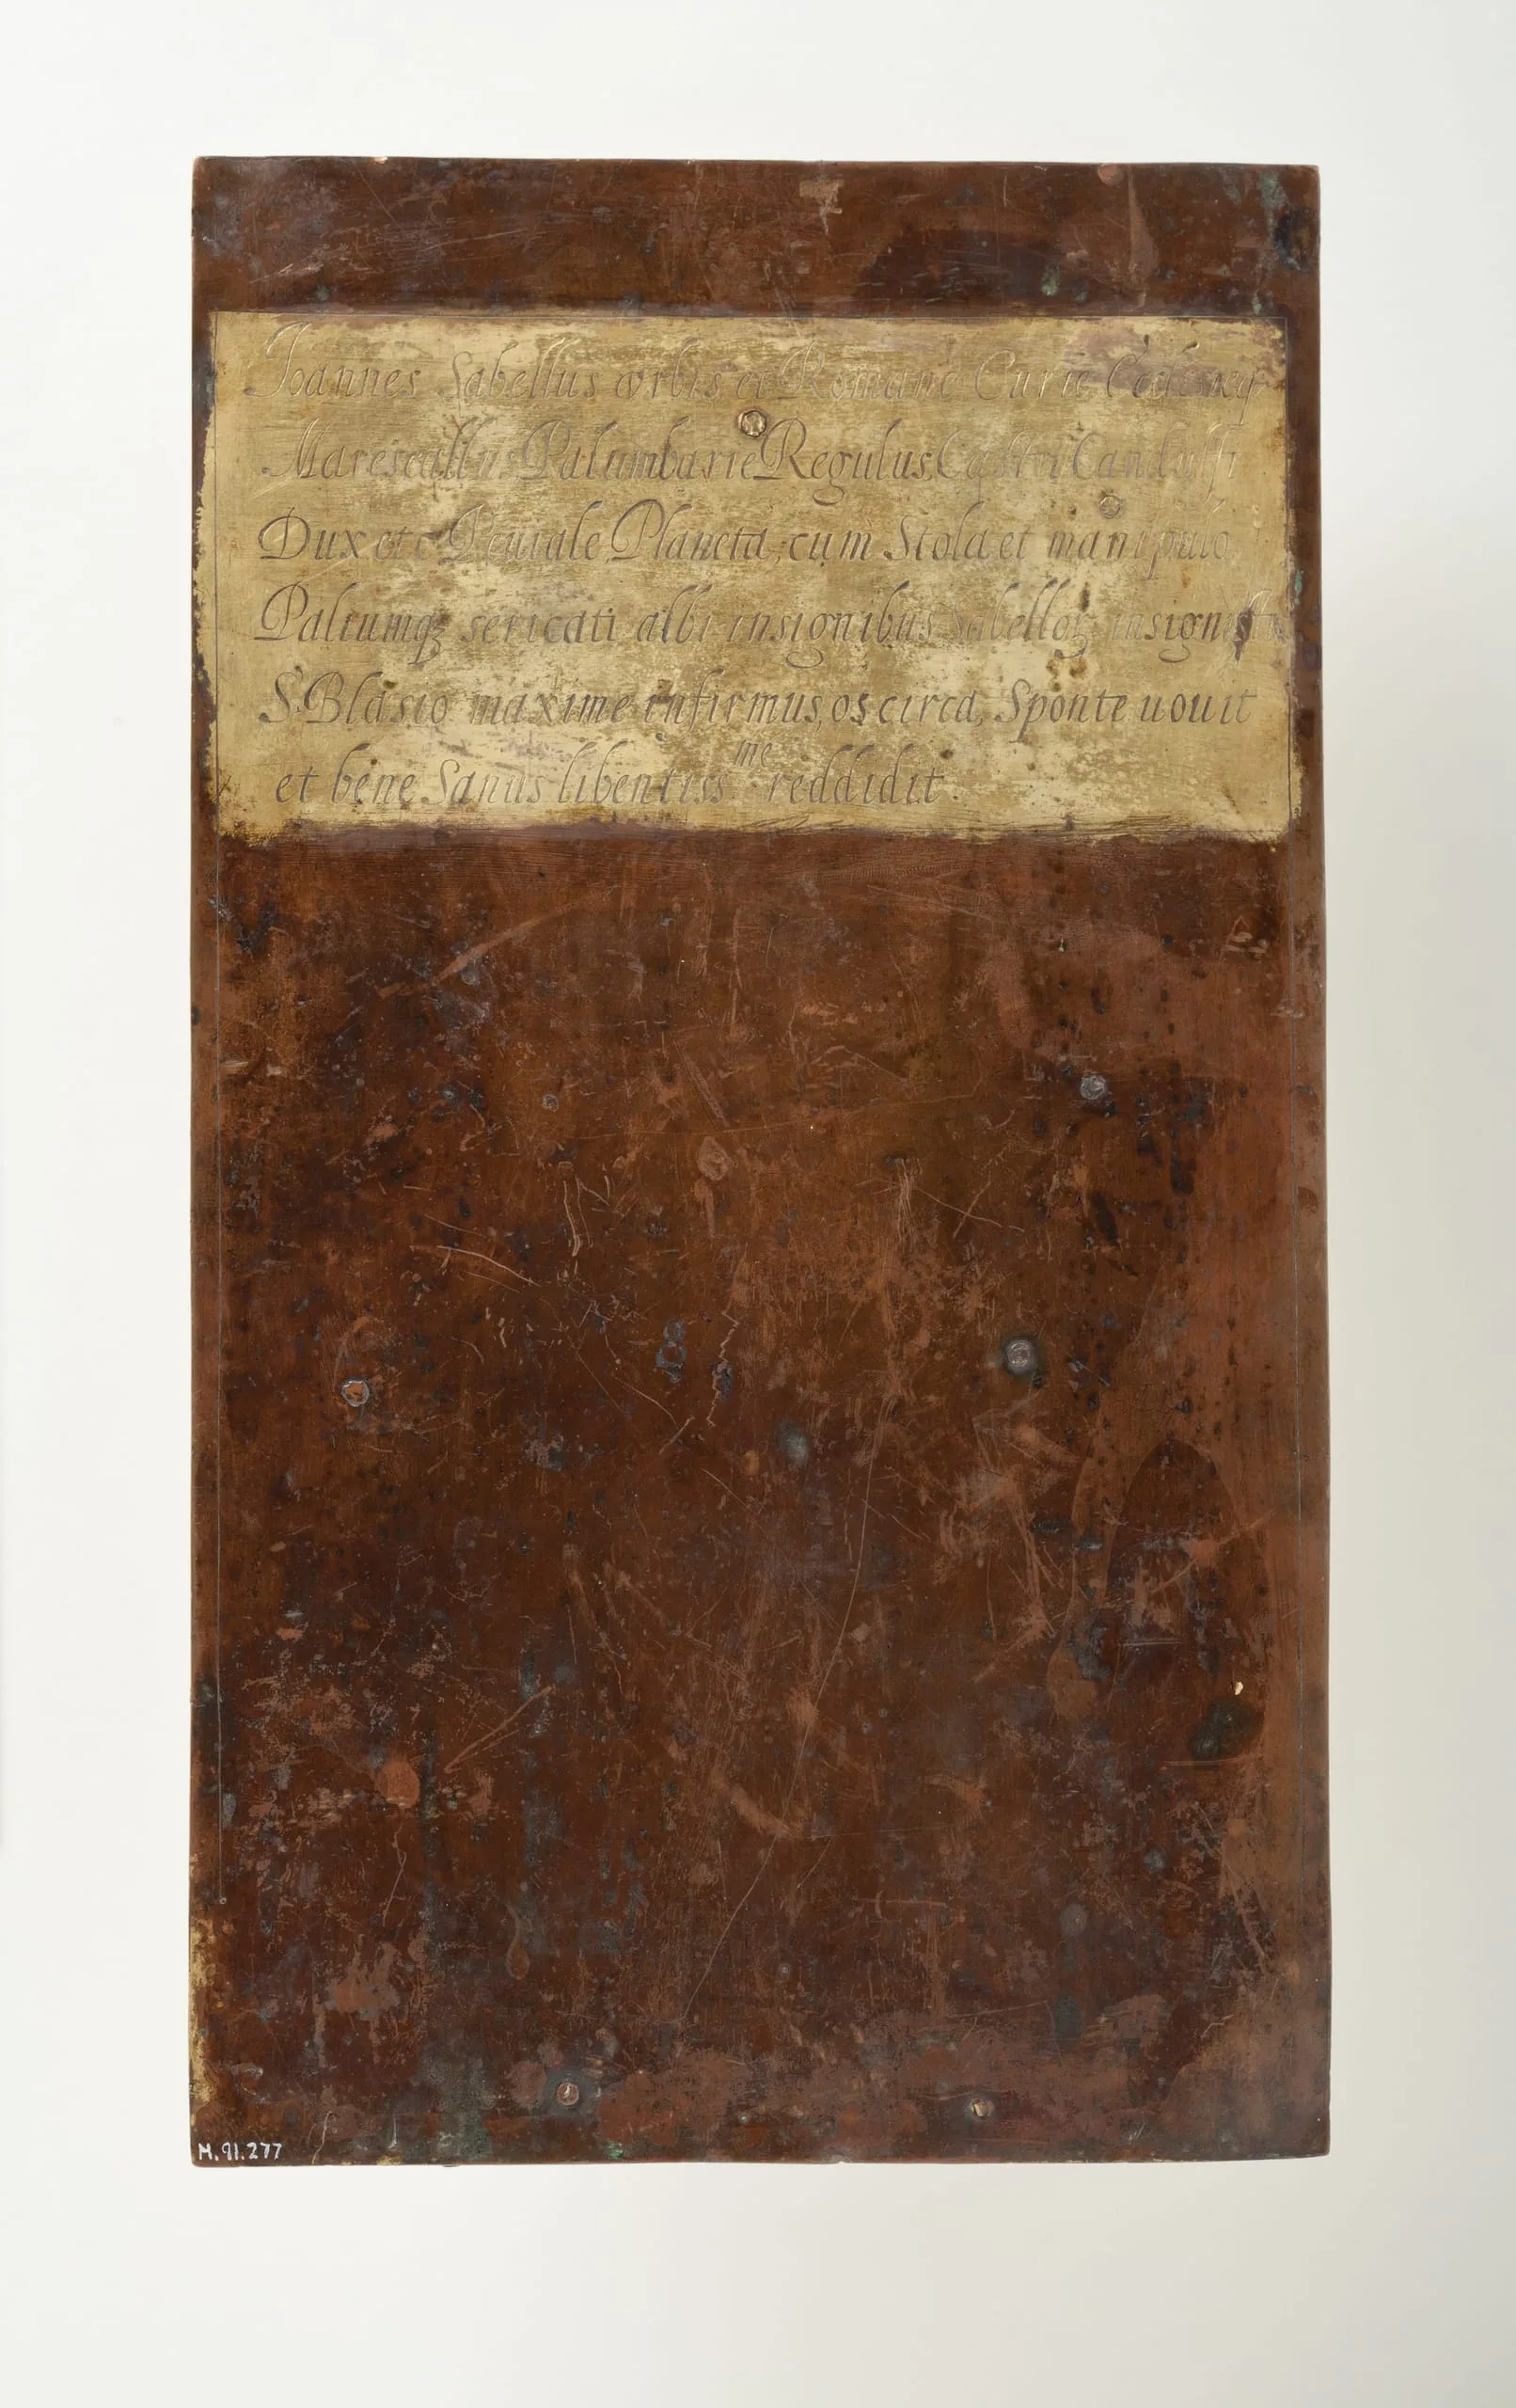 Ioannes Sabellus orbis et Romane Curie
Marescallus Palumbarie Regulus Castri Candulfi
Dux etc Planeta, cum Stola et manipulo
Paliumqz sericati albi insignibus Sabelloz
S. Blasio maxime infirmus, os circa, Sponte uouit
et bene Sanus libentiss me reddidit
M.91.277